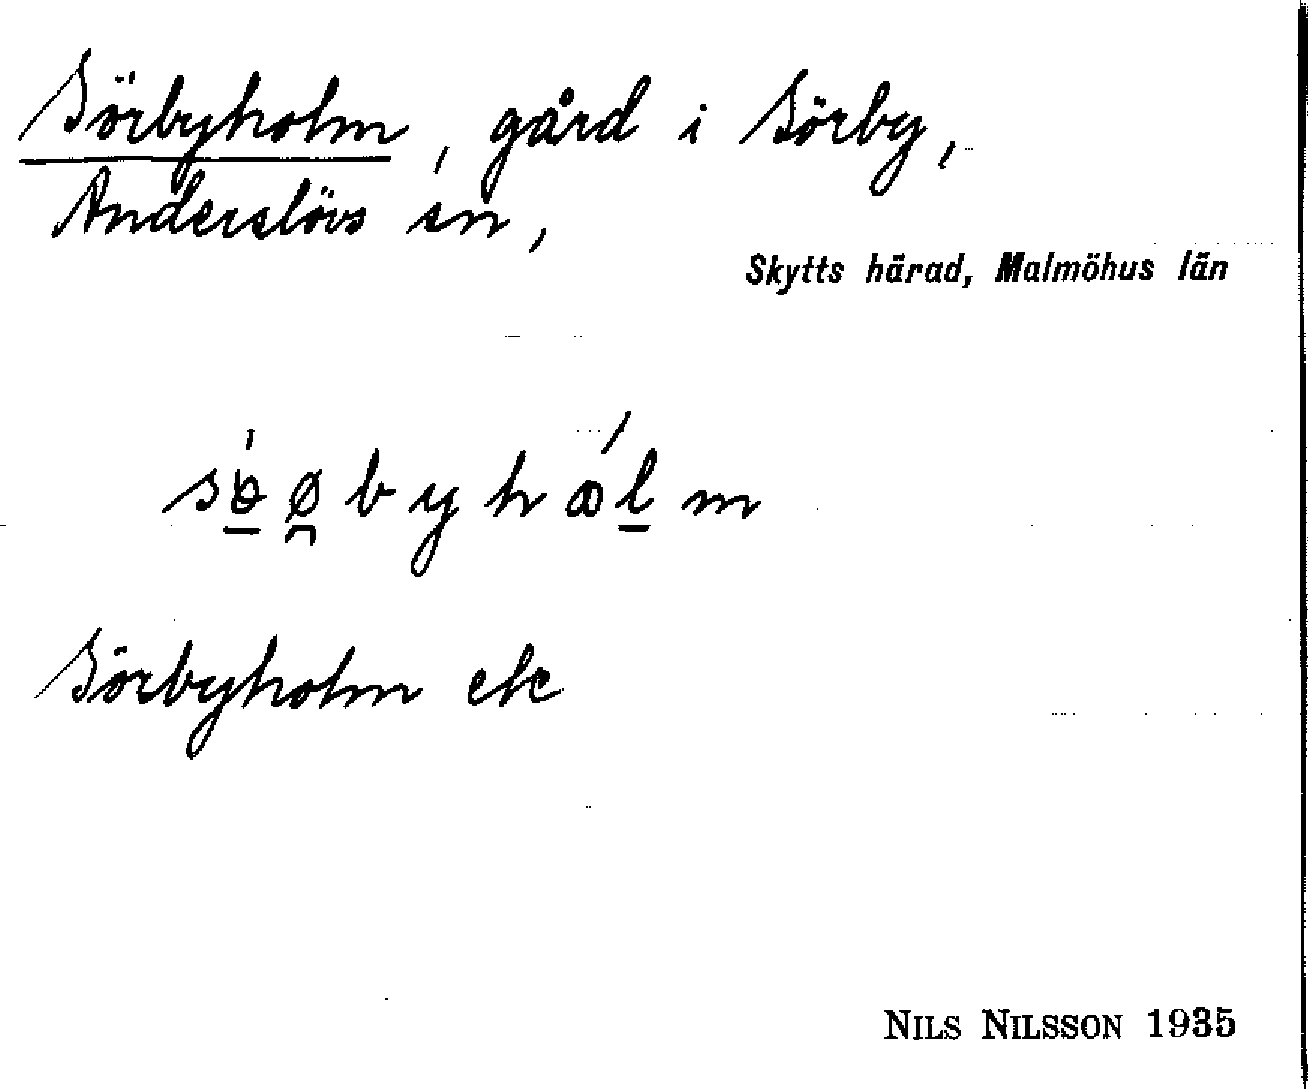 Sörbyholm, gård i Sörby,
Anderslövs sn,
Skytts härad, Malmöhus län
Sörbyholm ek
NILS NILSSON 1935